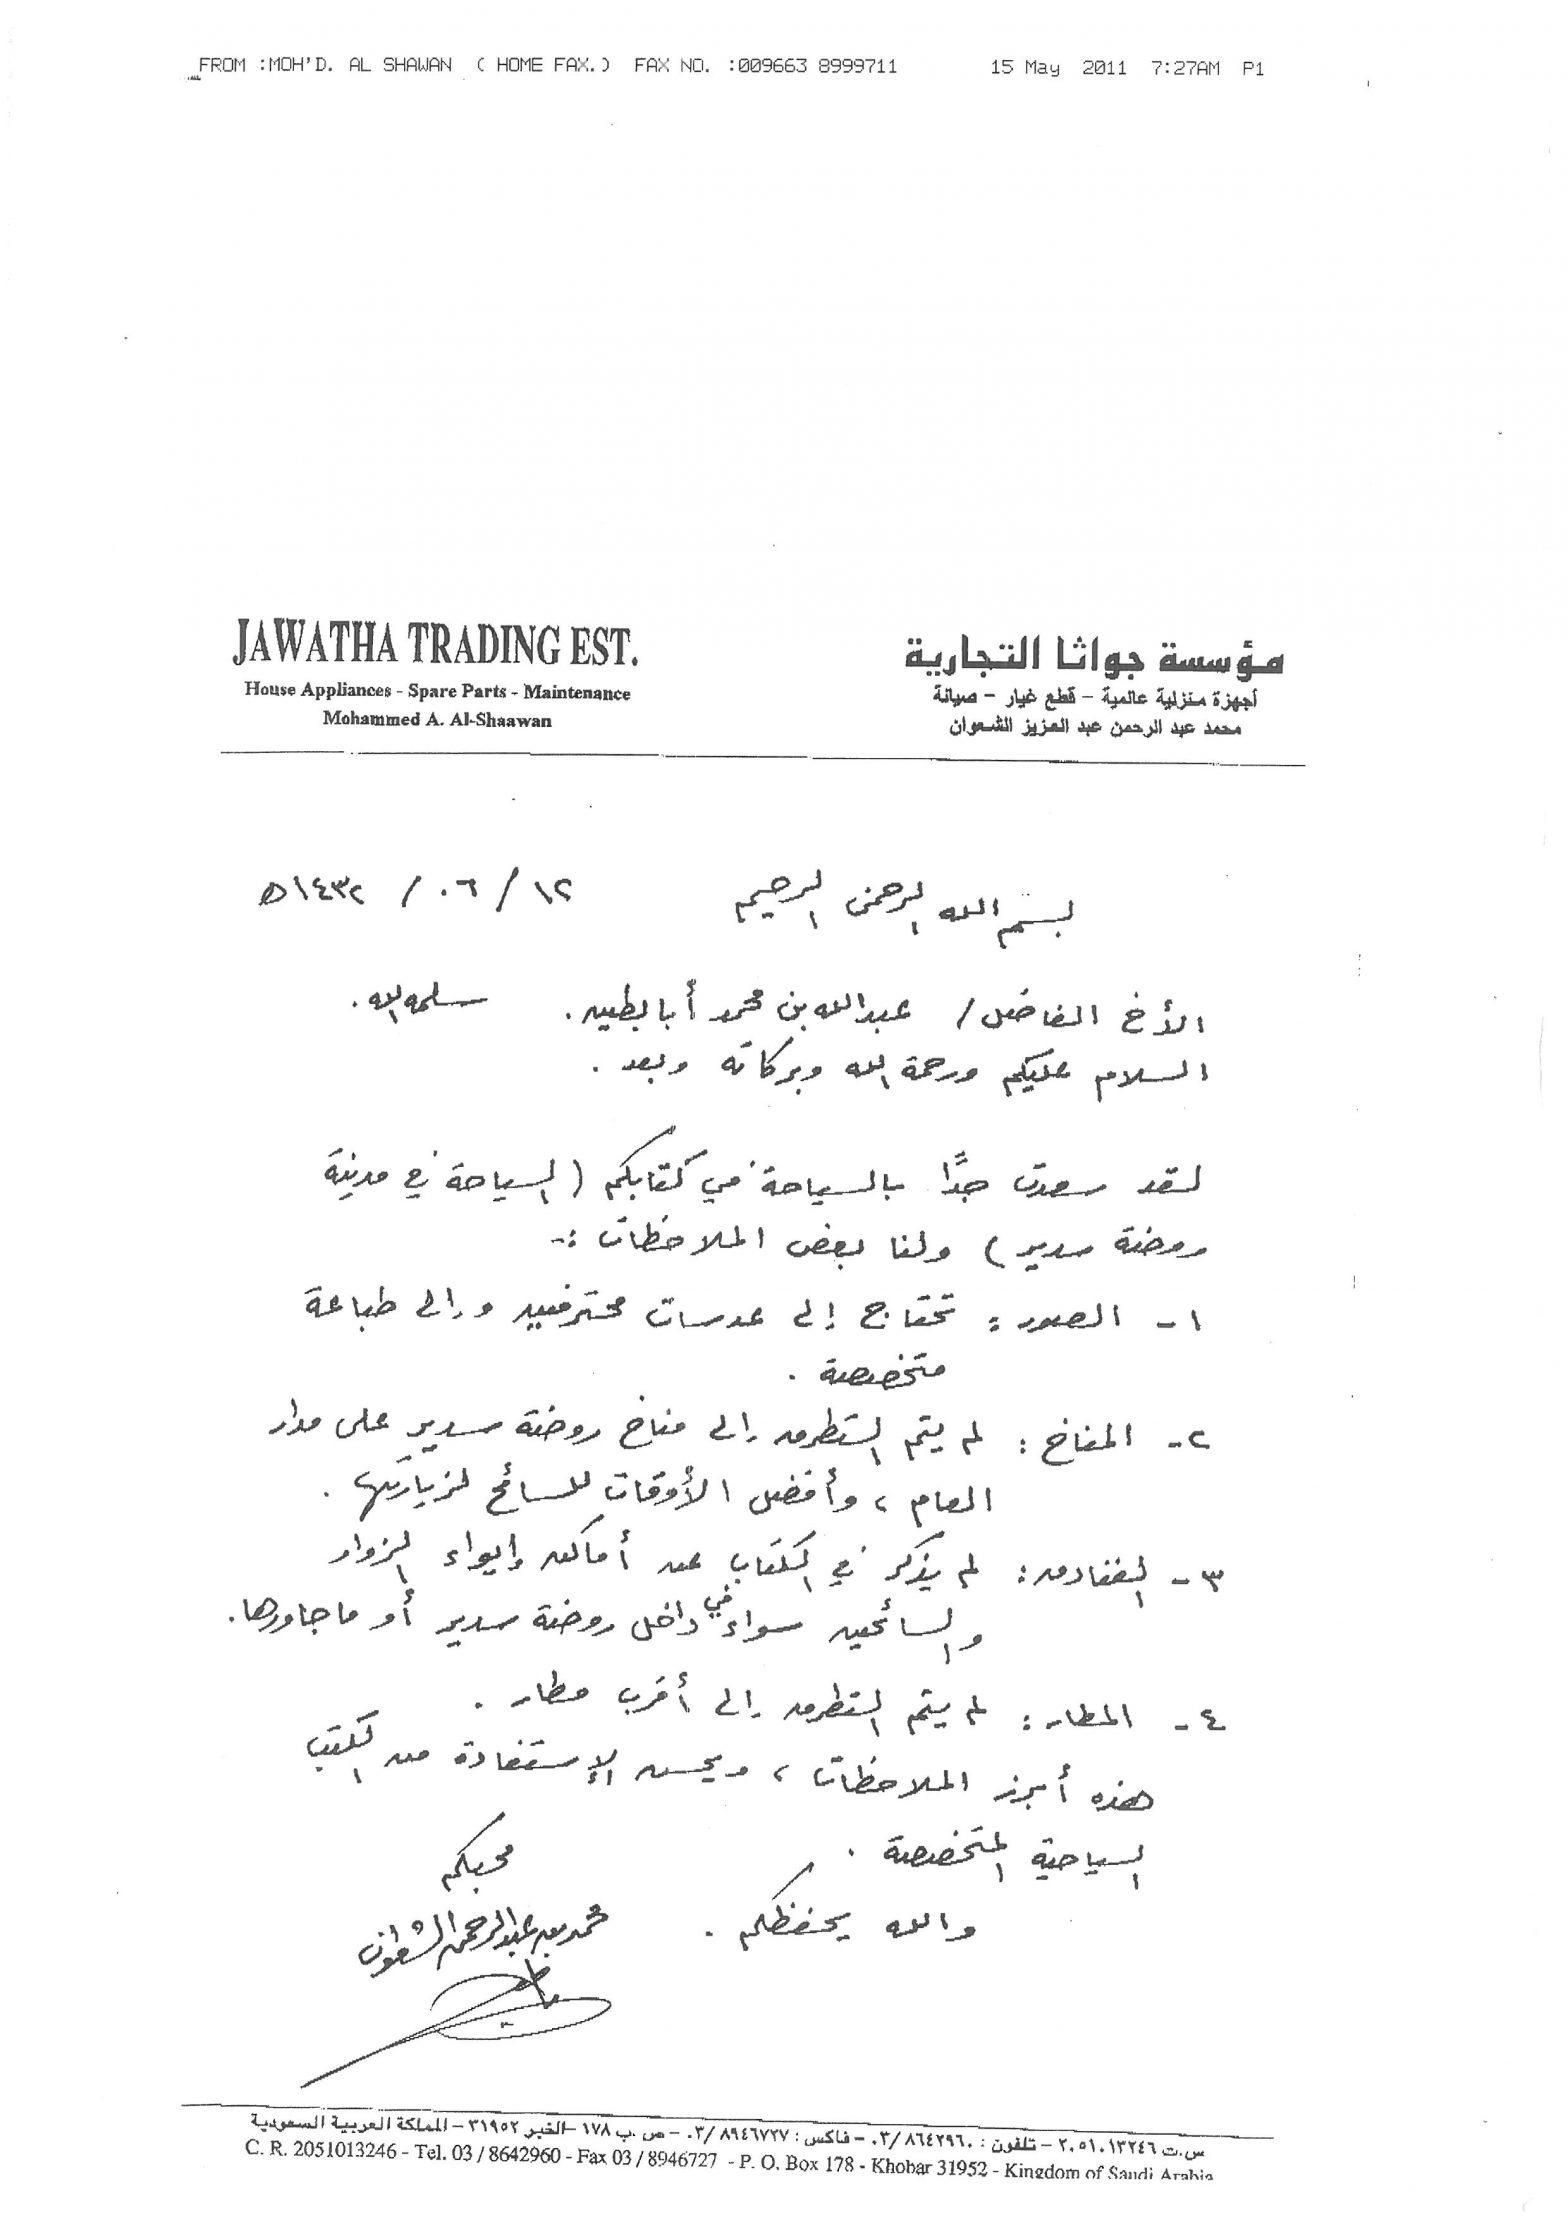 FROM :MOH'D. AL SHAWAN ( HOME FAX.) FAX NO. :009663 8999711 15 May 2011 7:27AM P1
JAWATHA TRADING EST.
House Appliances - Spare Parts - Maintenance
Mohammed A. Al-Shaawan
مؤسسة جواثا التجارية
أجهزة منزلية عالمية - قطع غيار - صيانة
محمد عبد الرحمن عبد العزيز الشعوان
بسم الله الرحمن الرحيم ١٢/ ٠٦ / ١٤٣٢هـ
الأخ الفاضل/ عبدالله بن محمد أبابطين. سلمه الله.
السلام عليكم ورحمة الله وبركاته وبعد.
لقد سعدت جدًا بالسياحة في كتابكم (السياحة في مدينة
روضة سدير) ولنا بعض الملاحظات :-
١- الصور : تحتاج إلى عدسات محترفين وإلى طباعة
متخصصة.
٢- المناخ : لم يتم التطرق إلى مناخ روضة سدير على مدار
العام، وأفضل الأوقات للسائح لزيارتها.
٣- الفنادق : لم يذكر في الكتاب عن أماكن إيواء الزوار
والسائحين سواء في داخل روضة سدير أو ما جاورها.
٤- المطار : لم يتم التطرق إلى أقرب مطار.
هذه أبرز الملاحظات، ويحسن الإستفادة من الكتب
السياحية المتخصصة.
والله يحفظكم.
محبكم
محمد بن عبدالرحمن الشعوان
س.ت ٢٠٥١٠١٣٢٤٦ - تلفون : ٠٣/٨٦٤٢٩٦٠ - فاكس : ٠٣/٨٩٤٦٧٢٧ - ص.ب ١٧٨ - الخبر ٣١٩٥٢ - المملكة العربية السعودية
C. R. 2051013246 - Tel. 03 / 8642960 - Fax 03 / 8946727 - P. O. Box 178 - Khobar 31952 - Kingdom of Saudi Arabia